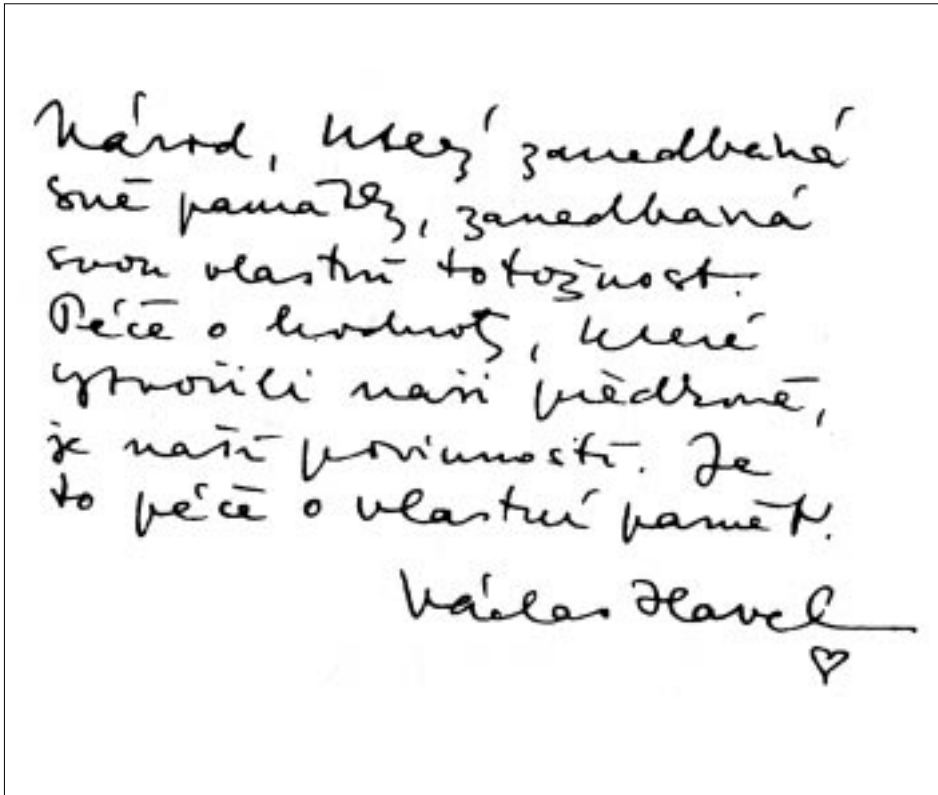 Národ, který zanedbává
své památky, zanedbává
svou vlastní totožnost.
Péče o hodnoty, které
vytvořili naši předkové,
je naší povinností. Je
to péče o vlastní paměť.
Václav Havel